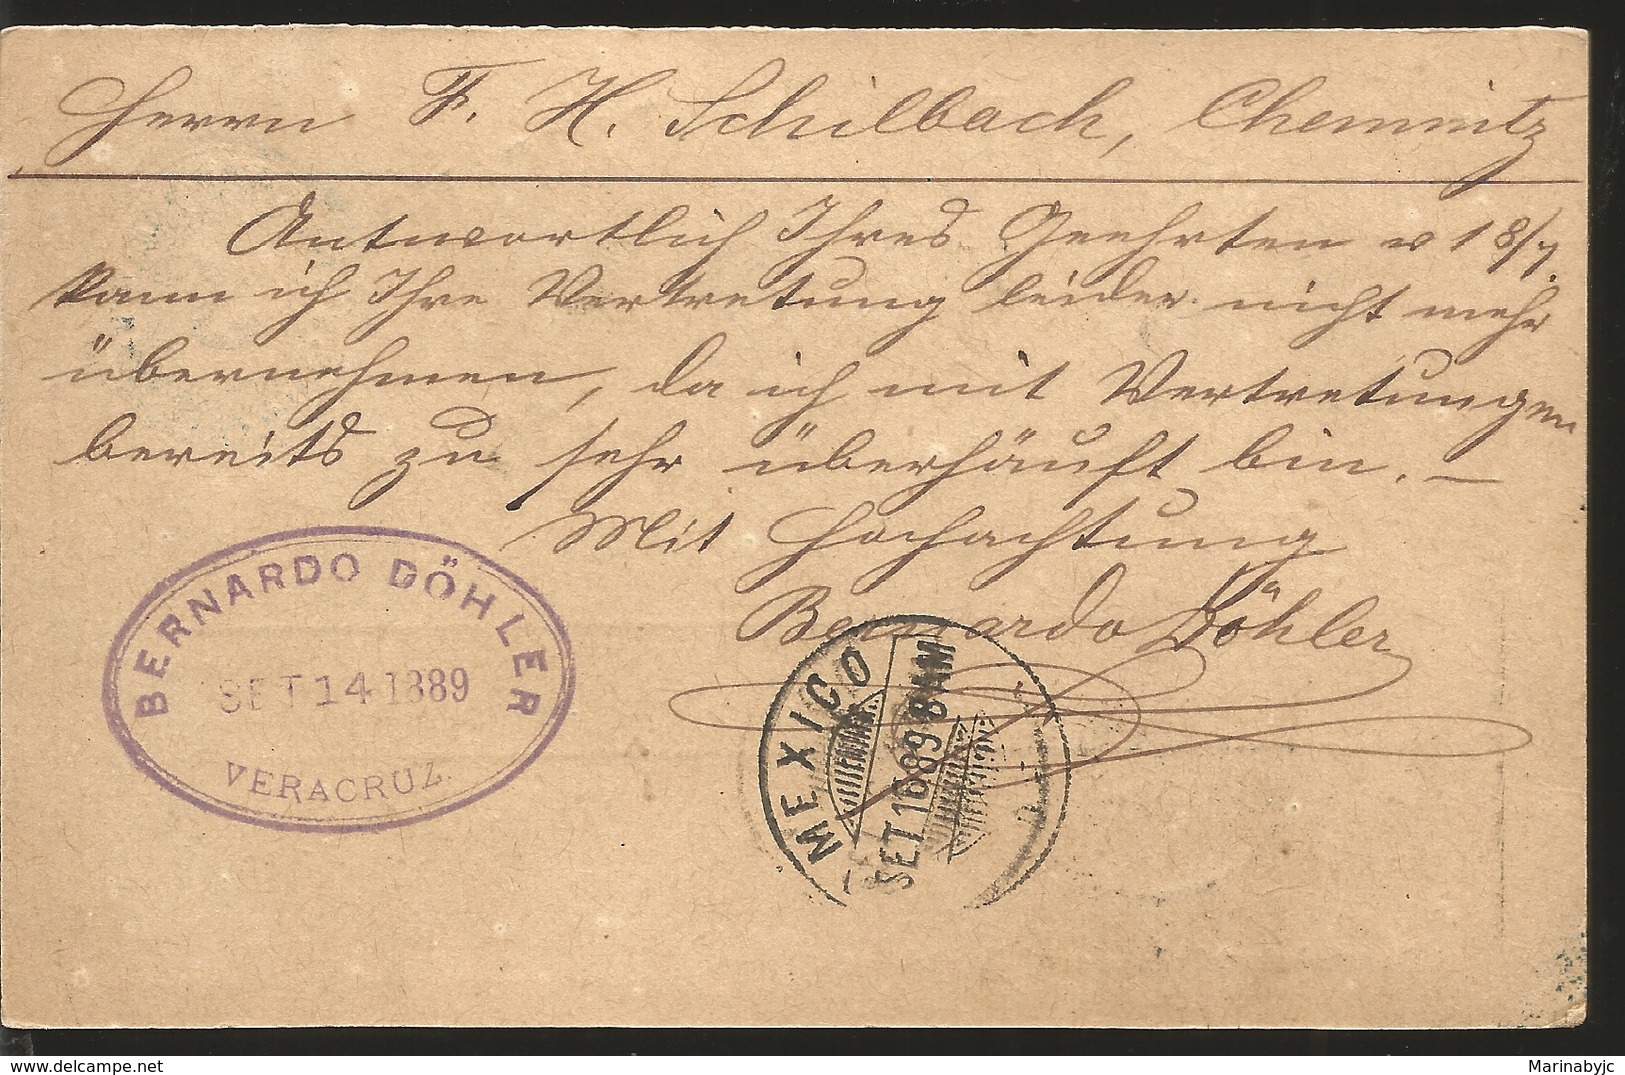 Herrn F. H. Schilbach, Chemnitz
Antwortlich Ihres Geehrten v 18/7.
kann ich Ihre Vertretung leider nicht mehr
übernehmen, da ich mit Vertretungen
bereits zu sehr überhäuft bin. —
Mit Hochachtung
Bernardo Döhler
BERNARDO DÖHLER
SET 14 1889
VERACRUZ
MEXICO
SET 16 89 8 AM
Marinabyjc